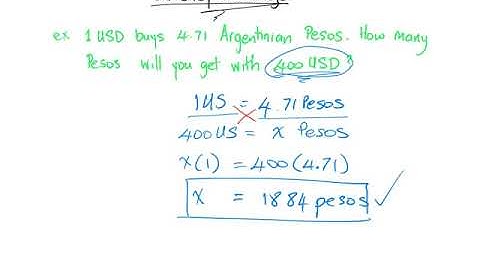 ex 1 USD buys 4.71 Argentinian Pesos. How many
Pesos will you get with 400 USD?
1US = 4.71 Pesos
400 US = x Pesos
x(1) = 400(4.71)
x = 1884 pesos